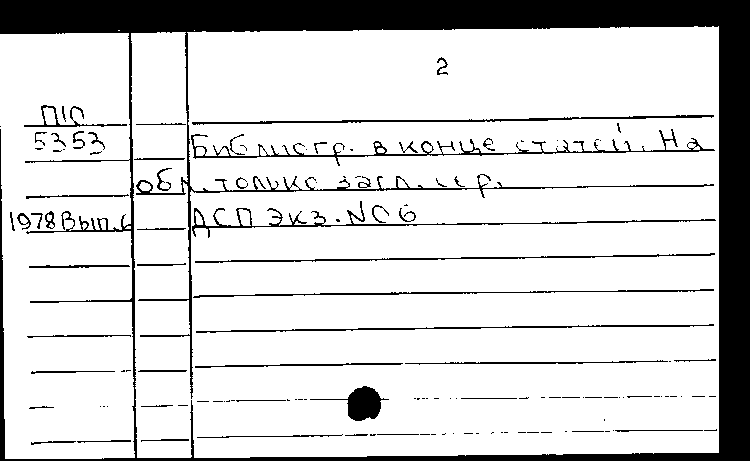 2
П10
5353
Библиогр. в конце статей. На
обл. только загл. сер.
1978 Вып. 6 ДСП ЭКЗ. №06